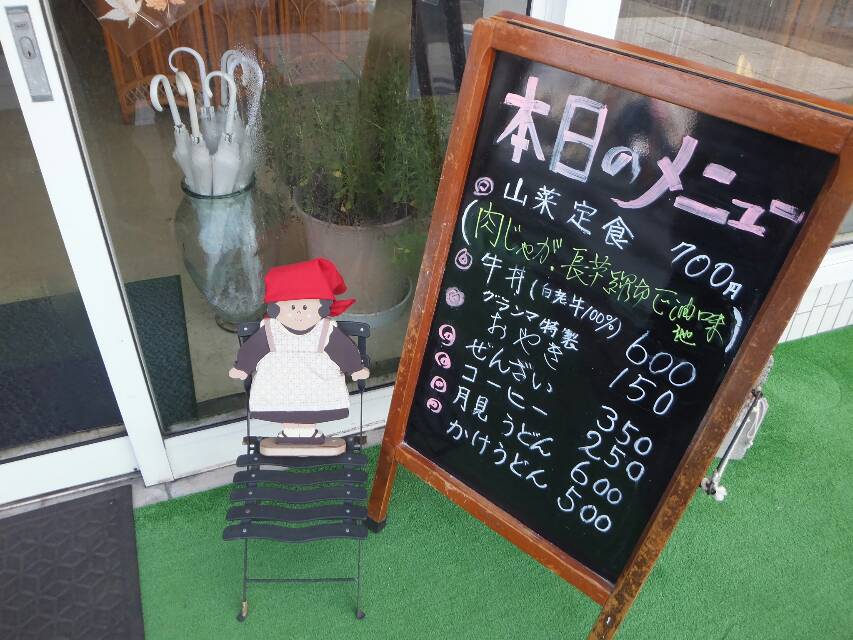 本日のメニュー
山菜定食 700円
(肉じゃが・長芋 油味 他)
牛丼(白老牛100%) 600
グランマ特製
おやき 150
ぜんざい 350
コーヒー 250
月見うどん 600
かけうどん 500